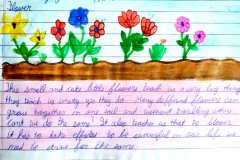 Flower
This small and cute little flowers teach us a very big thing
they teach us unity yes they do. Very different flowers can
grow together in any soil and without troubling others
Cant we do the same. It also teaches us that to bloom
it has to take efforts. So be successful in our life we
need to strive for the same